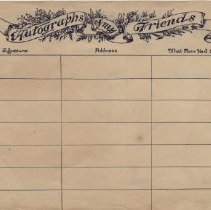 Autographs of My Friends
Signature Address What May Nail